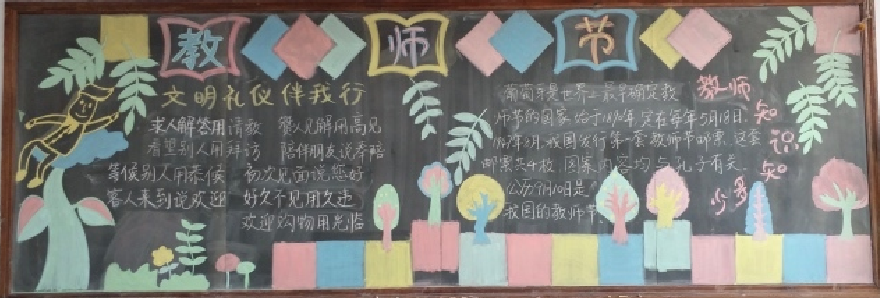 教师节
文明礼仪伴我行
求人解答用请教 歉见解用高见
看望别人用拜访 陪伴朋友说奉陪
等候别人用恭候 初次见面说您好
客人来到说欢迎 好久不见用久违
欢迎购物用光临
葡萄牙是世界上最早确定教
师节的国家始于1899年定在每年5月18日.
年月我国发行第一套教师节邮票.这套
邮票共4枚.图案内容均与孔子有关.
公历9月10日是
我国的教师节
教师知识知多少